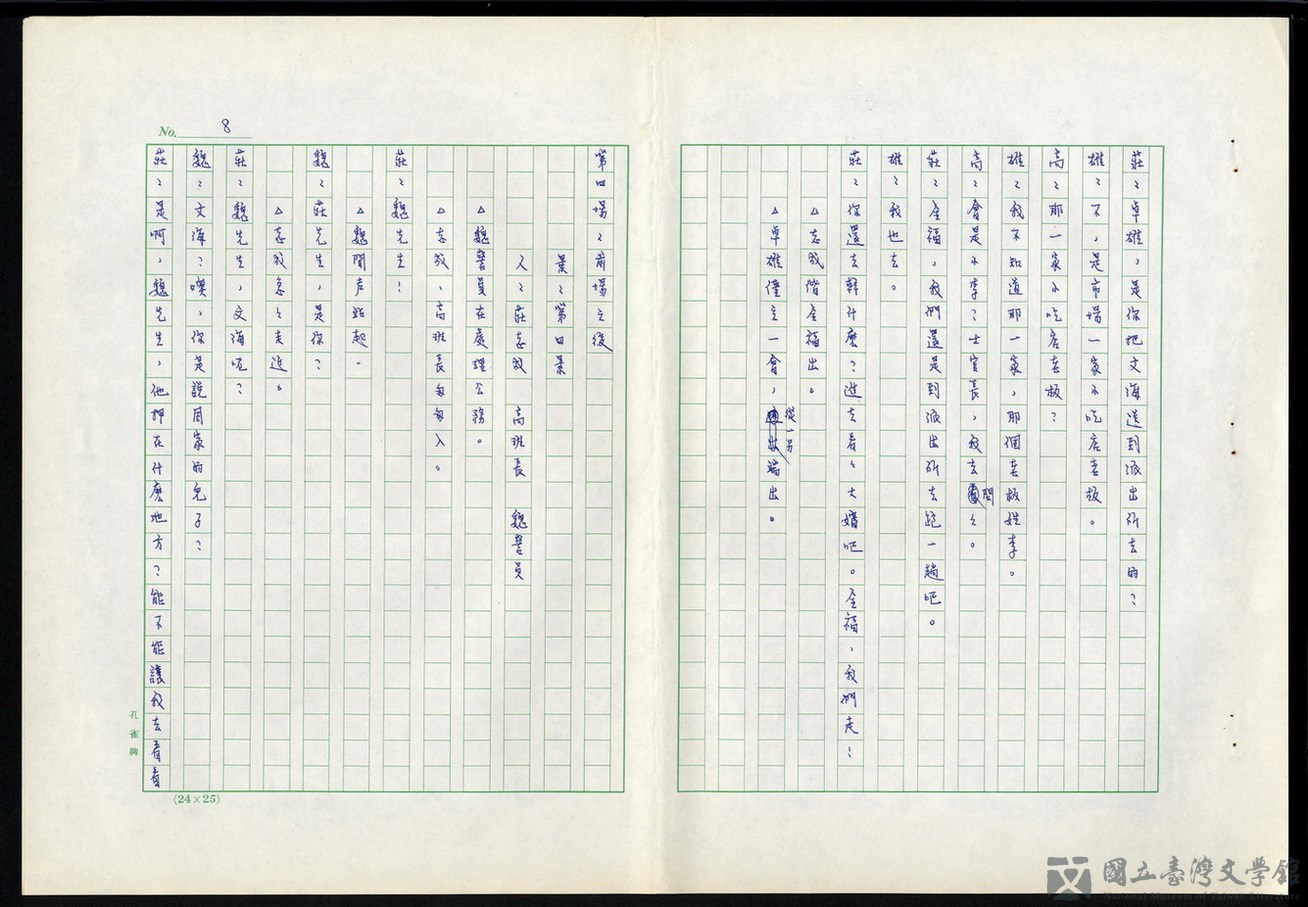 莊：卓雄，是你把文海送到派出所去的？
雄：不，是市場一家小吃店老板。
高：那一家小吃店老板？
雄：我不知道那一家，那個老板姓李。
高：會是小李？士官長，我去問々。
莊：全福，我們還是到派出所去跑一趟吧。
雄：我也去。
莊：你還去幹什麼？進去看々大嬸吧。全福，我們走！
△志成偕全福出。
△卓雄僮立一會，從一另端出。
No. 8
第四場：前場之後
景：第四景
人：莊志成 高班長 魏警員
△魏警員在處理公務。
△志成、高班長匆匆入。
莊：魏先生！
△魏聞声站起。
魏：莊先生，是你？
△志成急々走近。
莊：魏先生，文海呢？
魏：文海？噢，你是說周家的兒子？
莊：是啊，魏先生，他押在什麼地方？能不能讓我去看看
孔雀牌
(24×25)
國立臺灣文學館
National Museum of Taiwan Literature